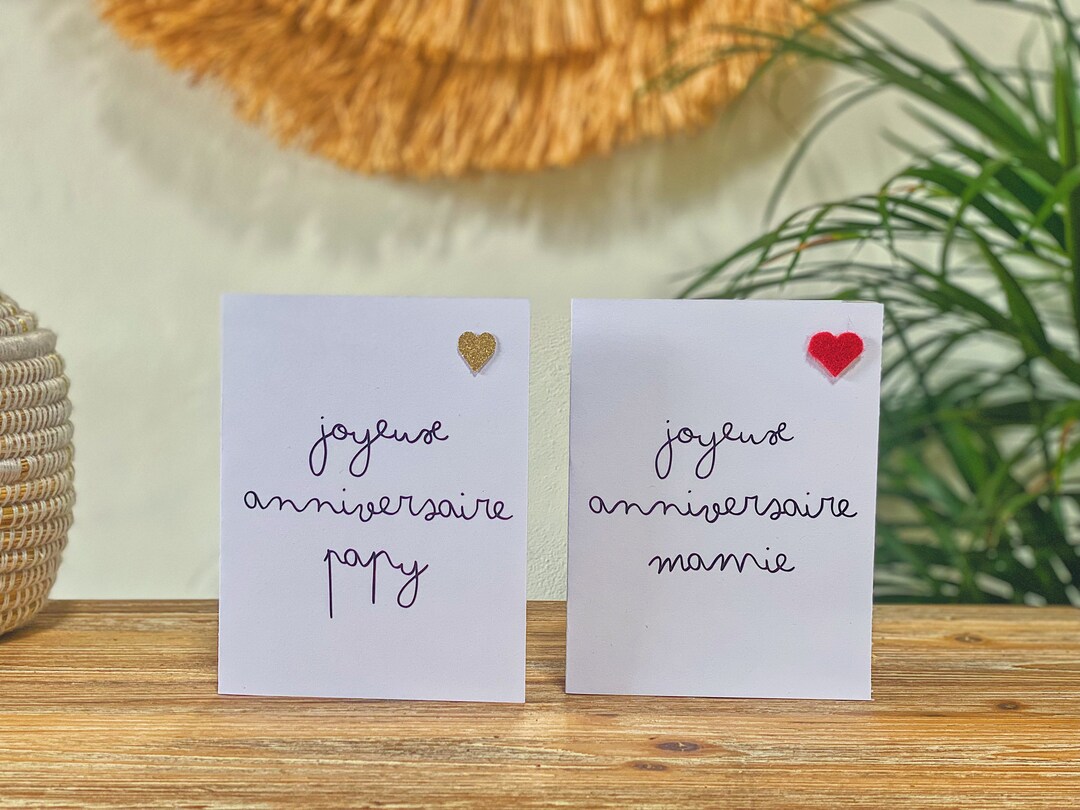 joyeuse
anniversaire
papy
joyeuse
anniversaire
mamie